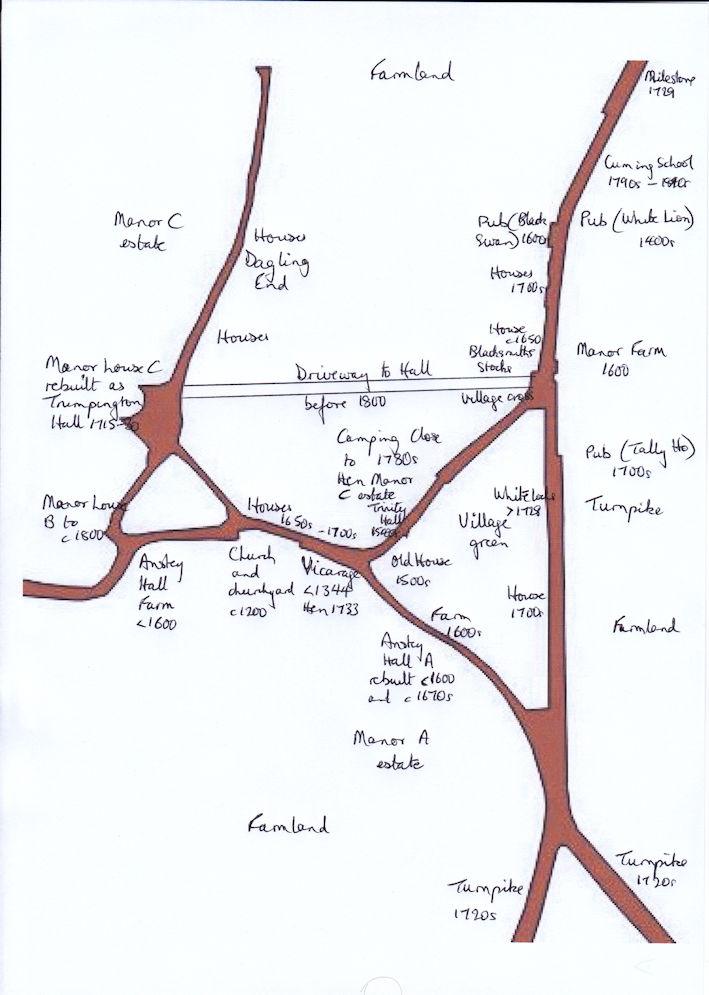 Farmland
Milestone
1729
Cuming School
1790s –
Manor C
estate
Pub (Black
Swan) 1600s
Pub (White Lion)
1400s
Houses
Dagling
End
Houses
1700s
Houses
House
c1650
Blacksmiths
Stocks
Manor Farm
1600
Manor house C
rebuilt as
Trumpington
Hall 1715-
Driveway to Hall
before 1800
village cross
Camping Close
to 1780s
then Manor
C estate
Trinity
Hall
Pub (Tally Ho)
1700s
Turnpike
>1729
Village
green
Manor house
B to
c1800
Houses
1650s -1700s
Anstey
Hall
Farm
<1600
Church
and
churchyard
c1200
Vicarage
<1344
then 1733
Old House
1500s
House
1700s
Farm
1600s
Farmland
Anstey
Hall A
rebuilt c1600
and c1670s
Manor A
estate
Farmland
Turnpike
1720s
Turnpike
1720s